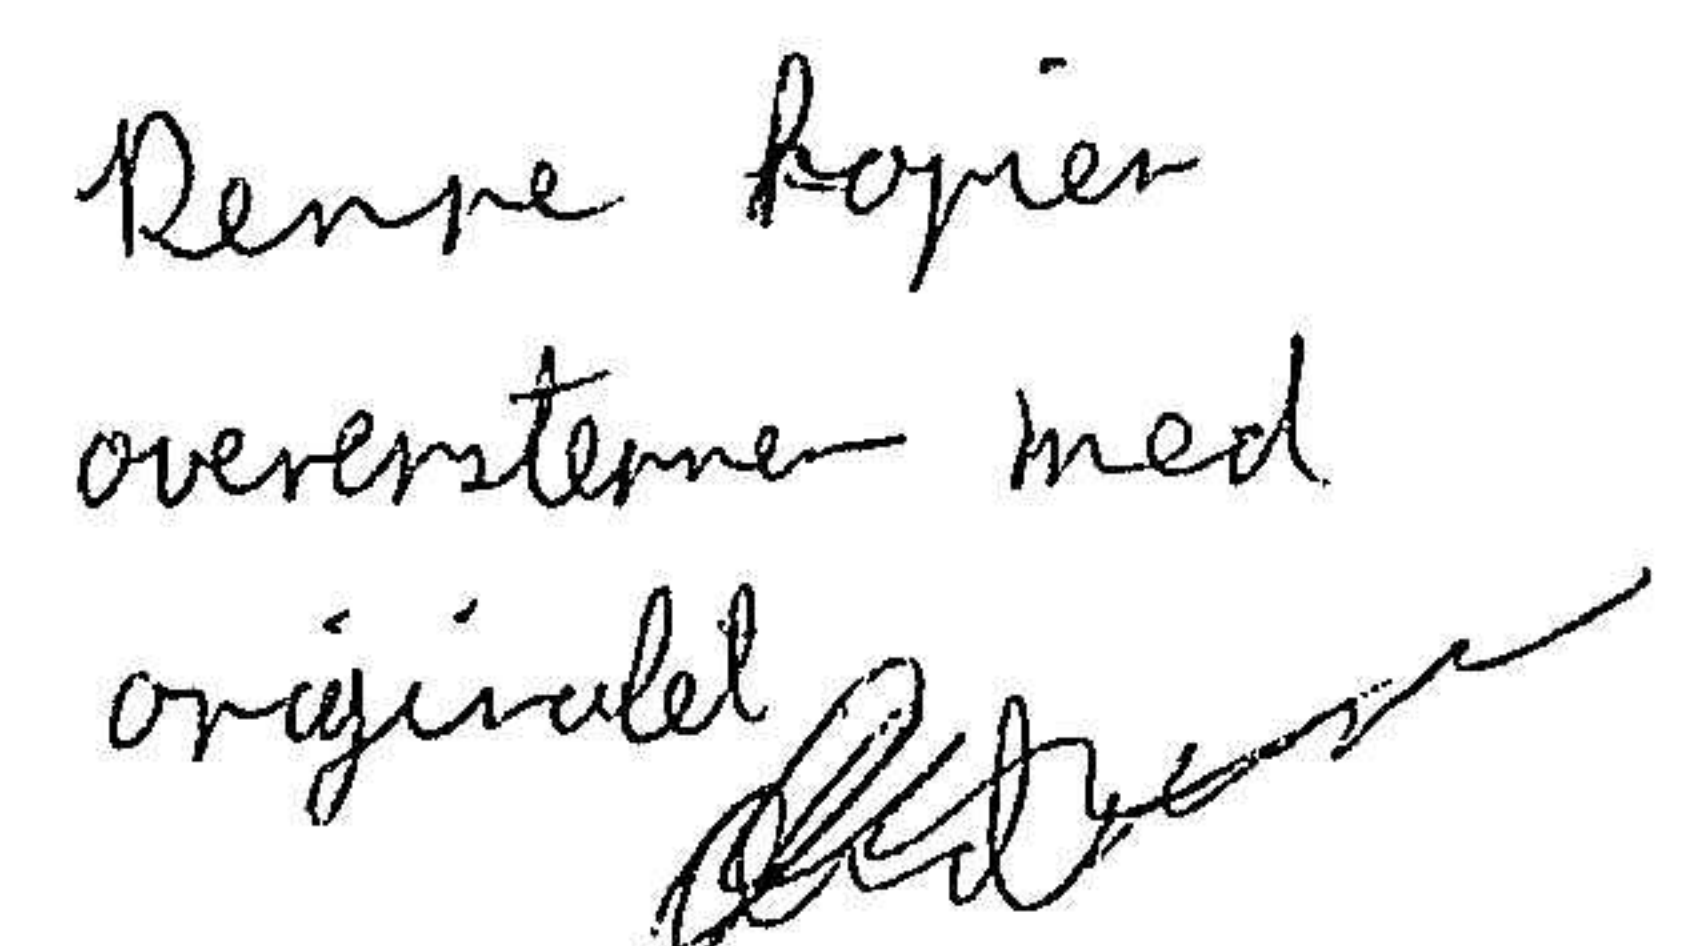 Denne kopien
overenstemmer med
originalet